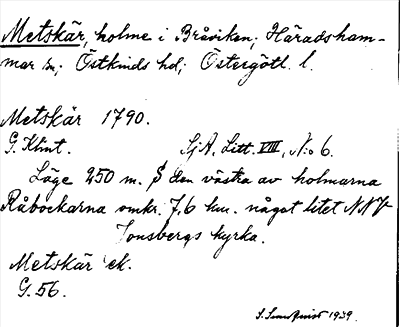 Metskär, holme i Bråviken; Häradsham-
mar sn; Östkinds hd; Östergötl. l.
Metskär 1790.
G. Klint. SjA, Litt. VIII, N:o 6.
Läge 250 m. S den västra av holmarna
Råbockarna omkr. 7,6 km. något litet NNV
Jonsbergs kyrka.
Metskär ek.
G. 56.
S. Sundqvist 1939.